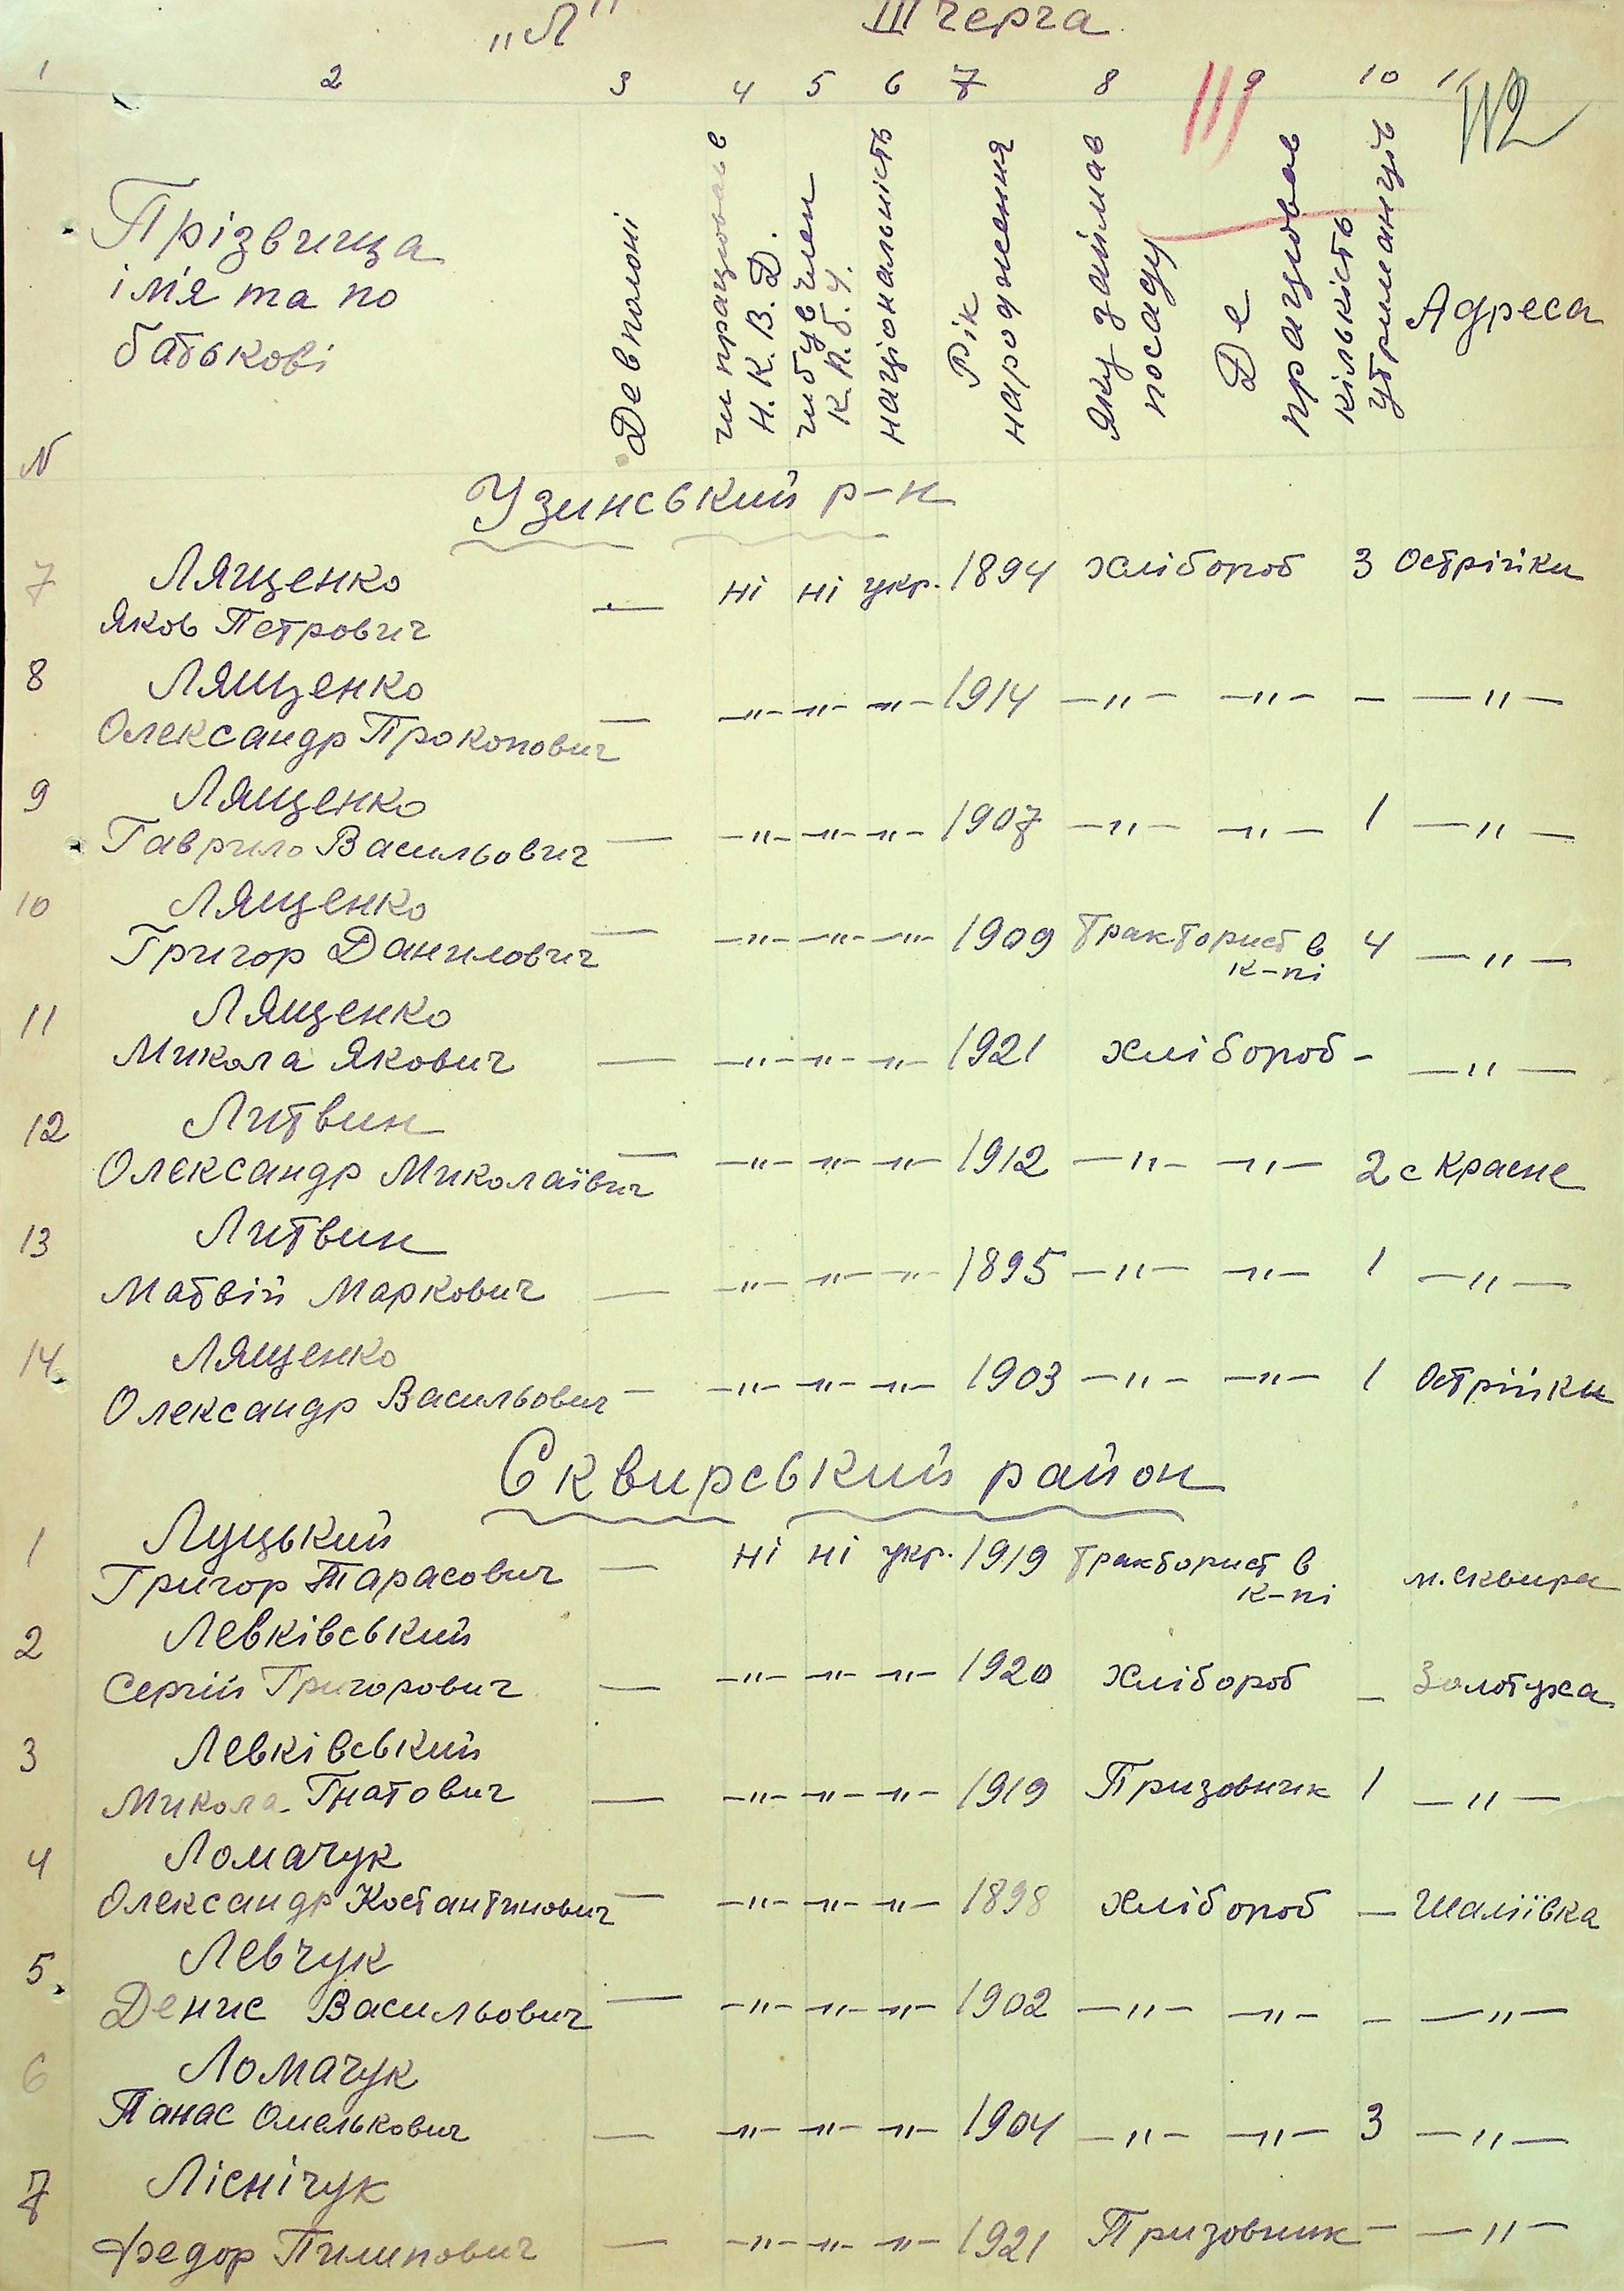 „Л" III черга
1 2 3 4 5 6 7 8 9 10 11
112
N
Прізвища
ім'я та по
батькові
Де в полоні
чи працював в
Н.К.В.Д.
чи був член
К.П.б.У.
національність
Рік
народження
Яку займав
посаду
Де
працював
кількість
утриманців
Адреса
Узинський р-н
7 Лященко — ні ні укр. 1894 хлібороб 3 Острійки
Яков Петрович
8 Лященко — —"— —"— —"— 1914 —"— —"— — —"—
Олександр Прокопович
9 Лященко — —"— —"— —"— 1907 —"— —"— 1 —"—
Гаврило Васильович
10 Лященко — —"— —"— —"— 1909 Тракторист в 4 —"—
Григор Данилович к-пі
11 Лященко
Микола Якович — —"— —"— —"— 1921 хлібороб - —"—
12 Литвин — —"— —"— —"— 1912 —"— —"— 2 с Красне
Олександр Миколаївич
13 Литвин
Матвій Маркович — —"— —"— —"— 1895 —"— —"— 1 —"—
14. Лященко — —"— —"— —"— 1903 —"— —"— 1 Острійки
Олександр Васильович
Сквирський район
1 Луцький — ні ні укр. 1919 тракторист в м. Сквира
Григор Тарасович к-пі
2 Левківський
Сергій Григорович — —"— —"— —"— 1920 хлібороб — Золотуха
3 Левківський
Микола Гнатович — —"— —"— —"— 1919 Призовник 1 —"—
4 Ломачук
Олександр Костантинович — —"— —"— —"— 1898 хлібороб — Шаліївка
5. Левчук
Денис Васильович — —"— —"— —"— 1902 —"— —"— — —"—
6 Ломачук
Панас Омелькович — —"— —"— —"— 1904 —"— —"— 3 —"—
7 Ліснічук
Федор Пилипович — —"— —"— —"— 1921 Призовник — —"—